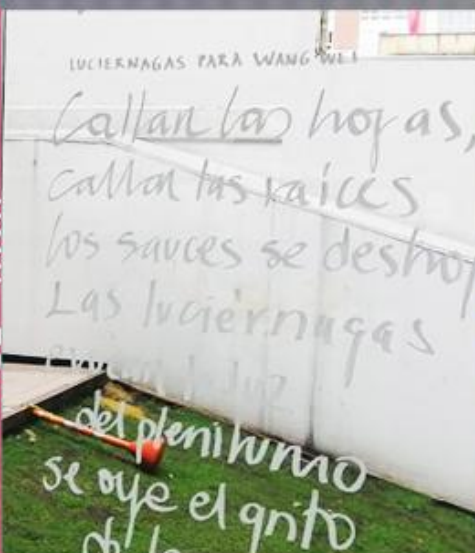 LUCIERNAGAS PARA WANG WEI
Callan las hojas,
callan las raíces
los sauces se deshoj
Las luciérnagas
la luz
del plenilunio
se oye el grito
de la